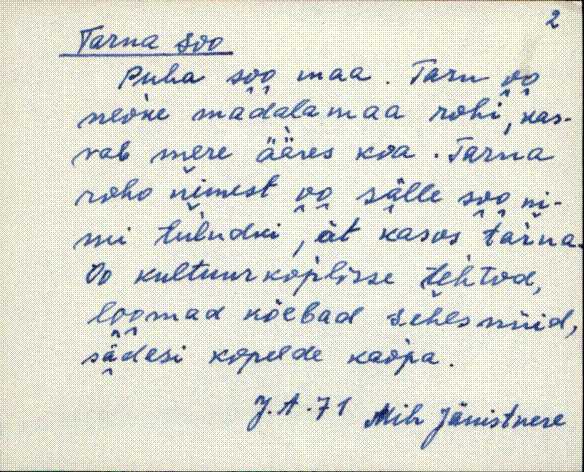 2
Tarna soo
Puha soo maa. Tarn oo
neoke madalamaa rohi, kas-
vab mere ääres koa. Tarna
roho nimest oo sälle soo ni-
mi tulndki, ät kasos tarna.
Oo kultuurkoplisse tehtod,
loomad köebad sehes nüid,
sädasi kopelde kaopa.
J.A.71 Mih Jänistvere